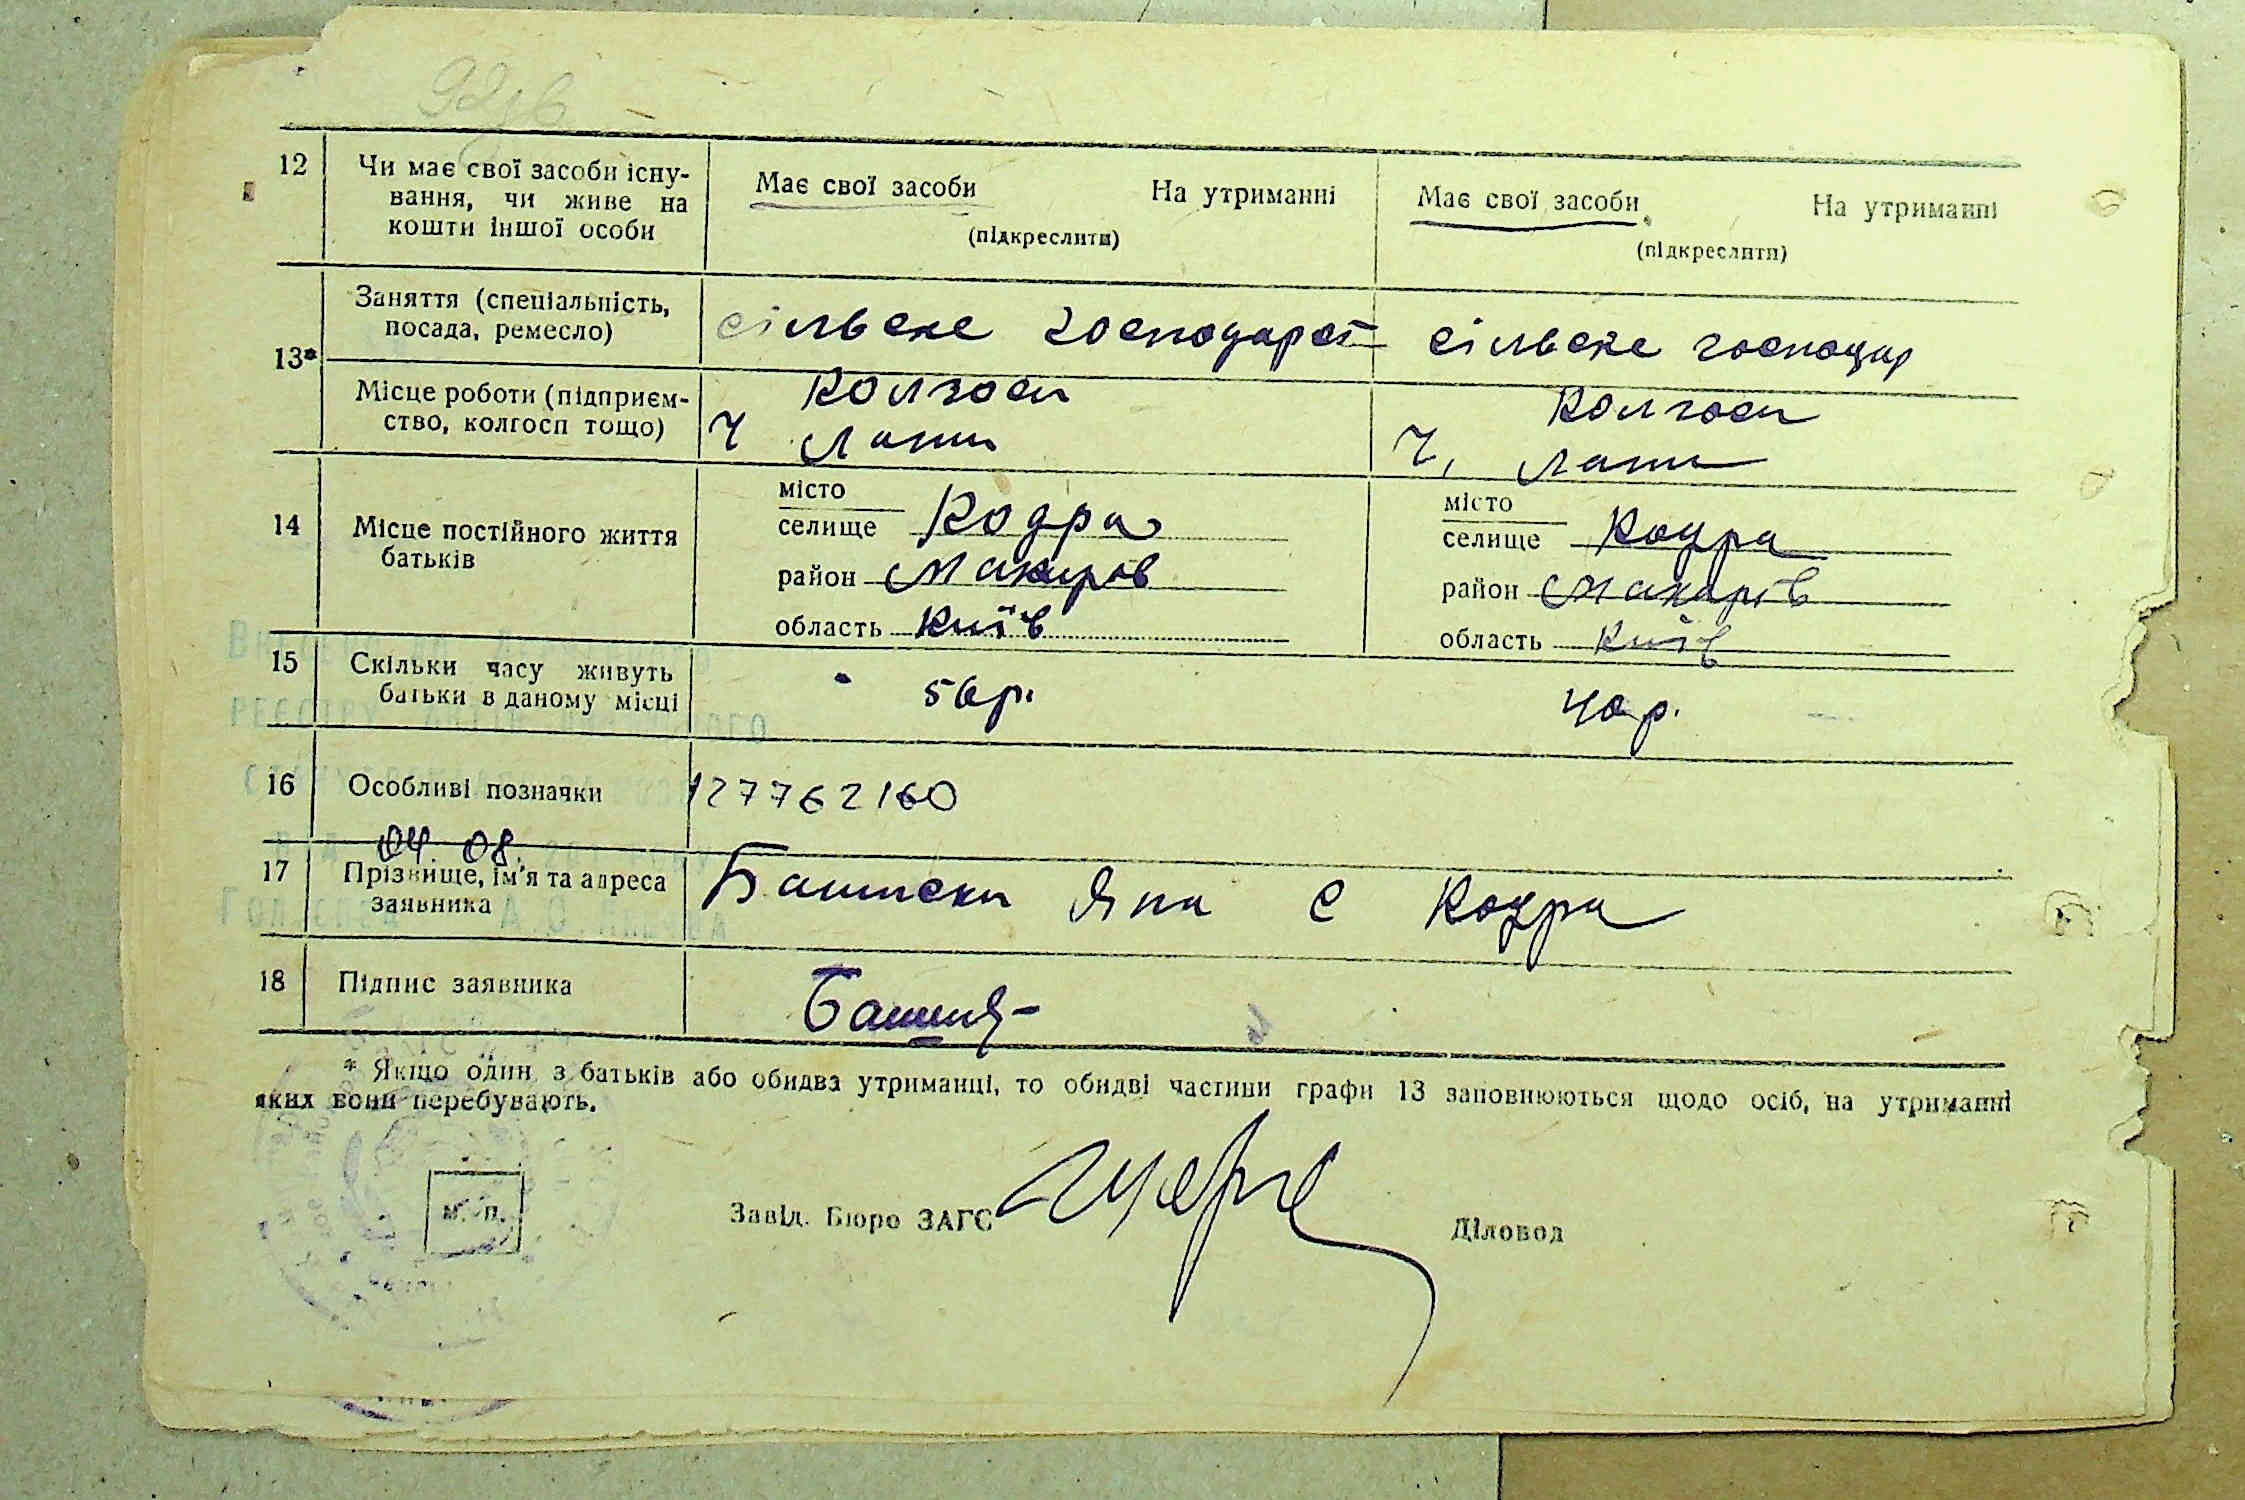 12 Чи має свої засоби існу-
вання, чи живе на
кошти іншої особи
Має свої засоби На утриманні
(підкреслити)
Має свої засоби На утриманні
(підкреслити)
13*
Заняття (спеціальність,
посада, ремесло)
сільске господарст
сільске господар
Місце роботи (підприєм-
ство, колгосп тощо)
Колгосп
Ч Лапи
Колгосп
Ч, Лапи
14 Місце постійного життя
батьків
місто
селище Кодра
район Макарів
область Київ
місто
селище Кодра
район Макарів
область Київ
15 Скільки часу живуть
батьки в даному місці
56р.
40р.
16 Особливі позначки
127762160
04 08
17 Прізвище, ім'я та адреса
заявника
Яна с Кодра
18 Підпис заявника
* Якщо один з батьків або обидва утриманці, то обидві частини графи 13 заповнюються щодо осіб, на утриманні
яких вони перебувають.
м. п.
Завід. Бюро ЗАГС
Діловод